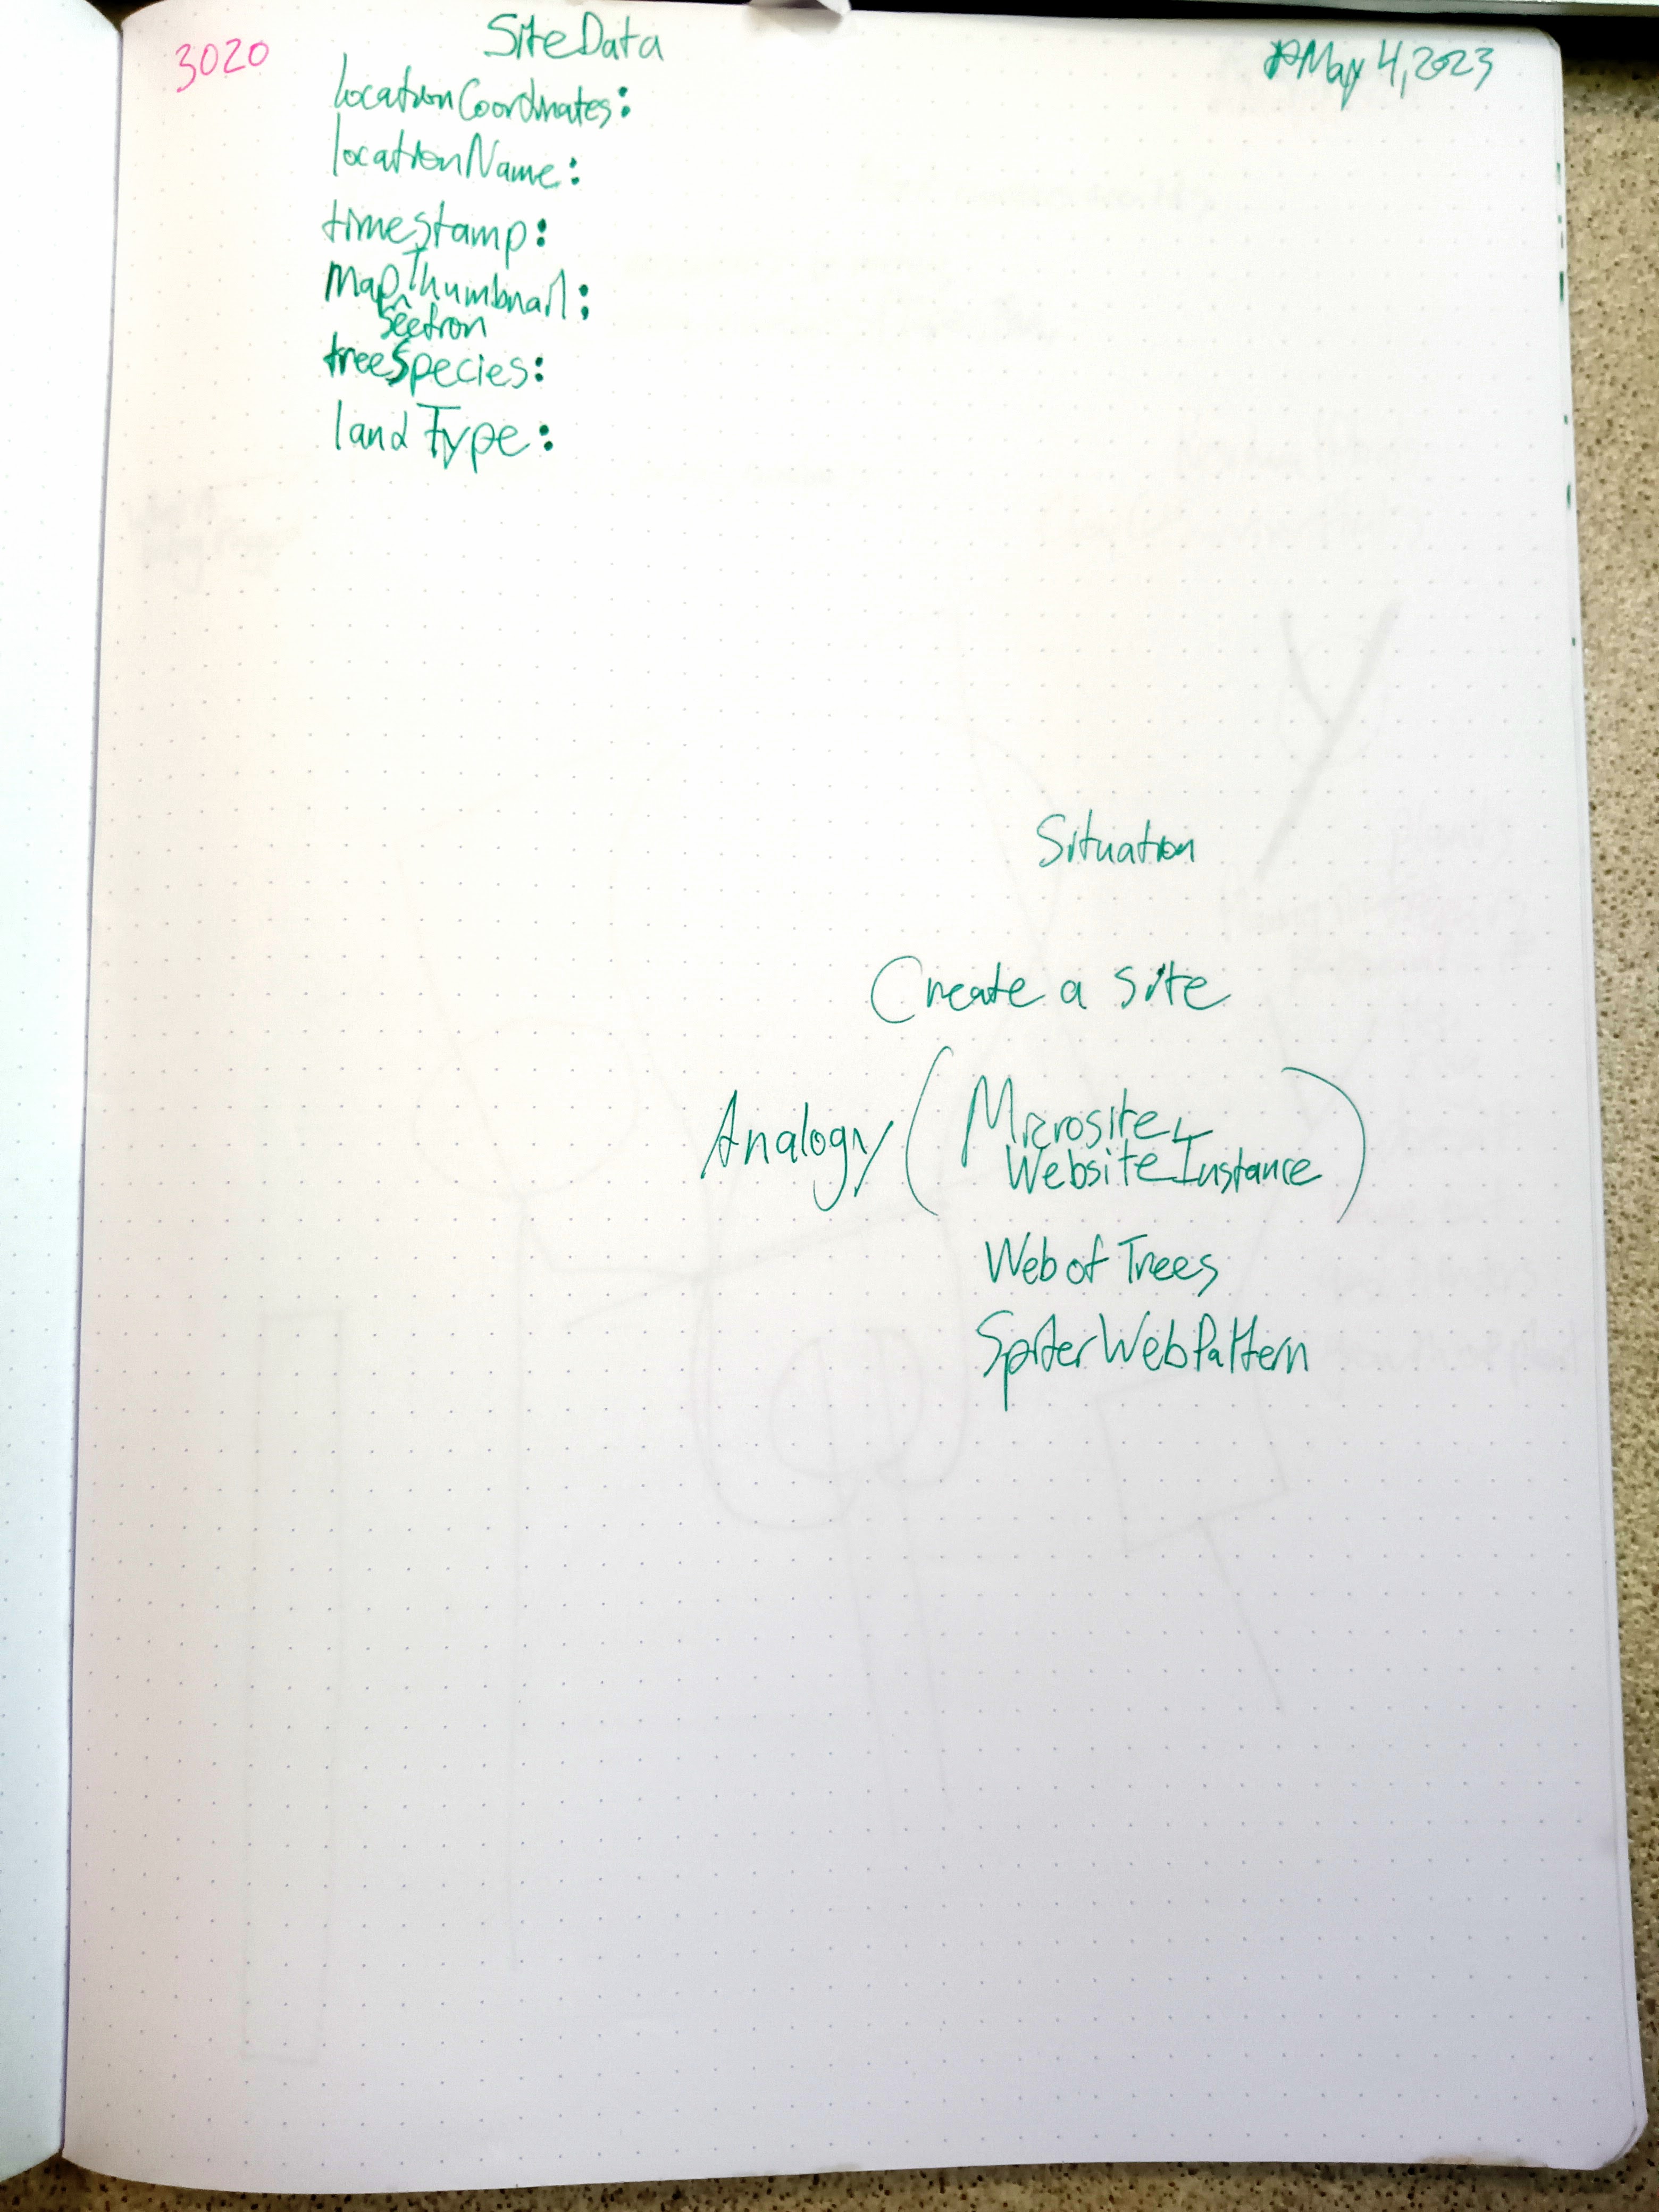 3020
SiteData
May 4, 2023
locationCoordinates:
locationName:
timestamp:
MapThumbnail:
^
Section
treeSpecies:
landType:
Situation
Create a site
Analogy (Microsite,
WebsiteInstance)
Web of Trees
SpiderWebPattern